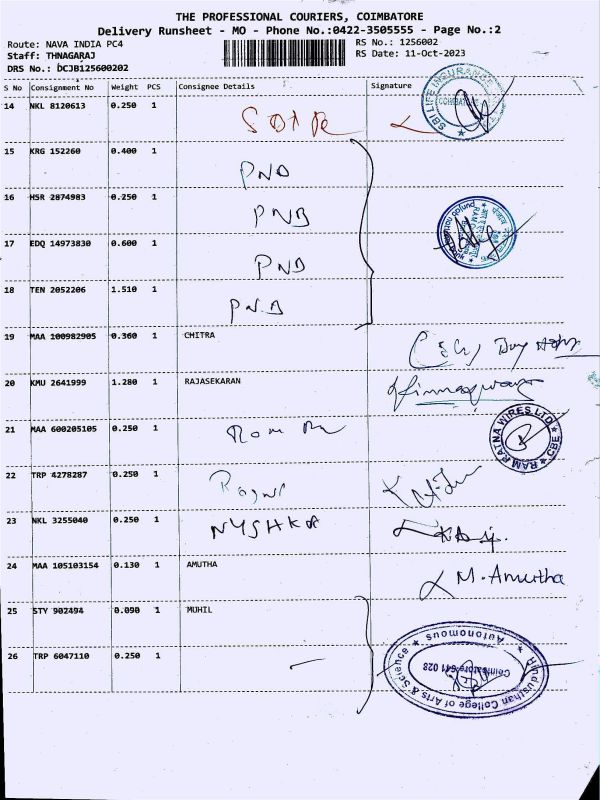 THE PROFESSIONAL COURIERS, COIMBATORE
Delivery Runsheet - MO - Phone No.:0422-3505555 - Page No.:2
Route: NAVA INDIA PC4 RS No.: 1256002
Staff: THNAGARAJ RS Date: 11-Oct-2023
DRS No.: DCJB125600202
S No Consignment No Weight PCS Consignee Details Signature
14 NKL 8120613 0.250 1
SBI LIFE INSURANCE
COIMBATORE
15 KRG 152260 0.400 1
PNB
16 HSR 2874983 0.250 1
PNB
17 EDQ 14973830 0.600 1
PNB
18 TEN 2052206 1.510 1
PNB
19 MAA 100982905 0.360 1 CHITRA
20 KMU 2641999 1.280 1 RAJASEKARAN
21 MAA 600205105 0.250 1
RAM RATNA WIRES LTD
CBE
22 TRP 4278287 0.250 1
23 NKL 3255040 0.250 1 NYSHKA
24 MAA 105103154 0.130 1 AMUTHA
M. Amutha
25 STY 902494 0.090 1 MUHIL
26 TRP 6047110 0.250 1
Hindusthan College of Arts & Science
Autonomous
Coimbatore-641 028